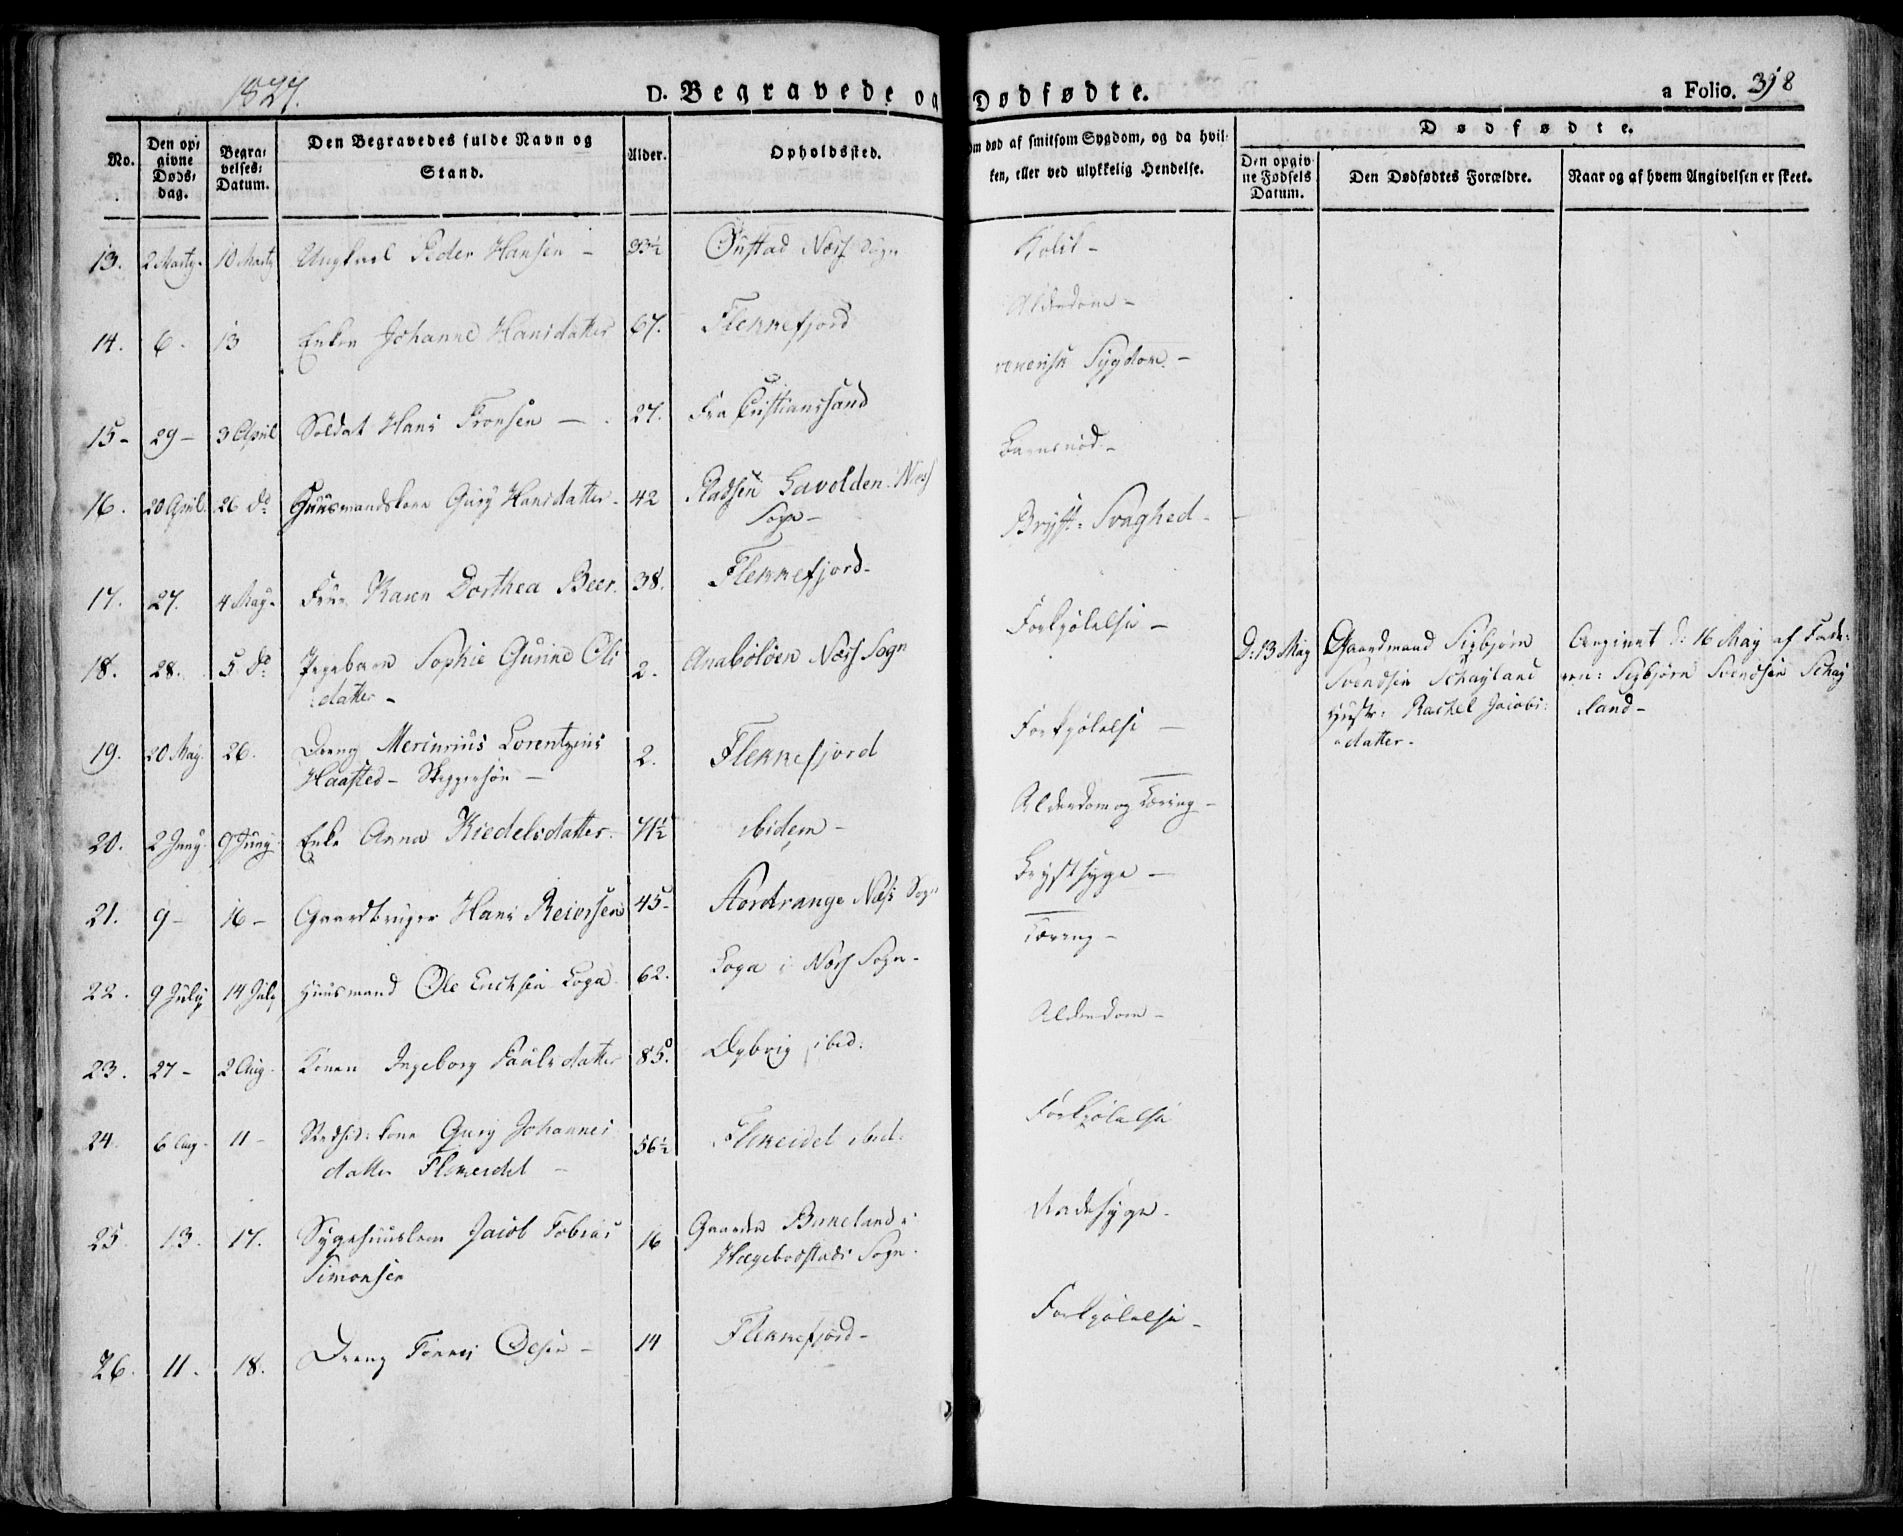 1827.
D. Begravede og Dødfødte.
a Folio. 398
No.
Den opgivne Døds-dag.
Begravelses-Datum.
Den Begravedes fulde Navn og Stand.
Alder.
Opholdssted.
Om død af smitsom Sygdom, og da hvilken, eller ved ulykkelig Hendelse.
Dødfødte.
Den opgivne Fødsels Datum.
Den Dødfødtes Forældre.
Naar og af hvem Angivelsen er skeet.
13. 2 Marty- 10 Marty Ungkarl Peder Hansen - 93½ Ønstad Næss Sogn Kolik-
14. 6- 13 Enken Johanne Hansdatter 67. Flekkefjord Alderdom-
15- 29- 3 April Soldat Hans Tronsen - 27. Fra Cristianssand venerisk Sygdom-
16. 20 April. 26 do Huusmandskone Gury Hansdatter- 42 Pladsen Lavolden Næss
Sogn- Barnsnød-
17. 27. 4 May- Frue Karen Dorthea Beer. 38. Flekkefjord- Bryst-Svaghed-
18. 28. 5 do Pigebarn Sophie Gurine Ols
datter- 2. Anabeløen Næss Sogn Forkjølelse-
D: 13 May Gaardmand Sigbjørn
Svendsen Schayland
Hustr: Rachel Jacobs:
datter-
Angivet d: 16 May af Fade:
ren: Sigbjørn Svendsen Schay
land-
19. 20 May. 26. Dreng Mercurius Lorentzius
Haasted- Skeggesøn- 2. Flekkefjord Forkjølelse-
20. 2 Juny- 9 Juny- Enke Anna Kiedelsdatter- 71½ ibidem- Alderdom og Tæring-
21. 9- 16- Gaardbruger Hans Reiersen 45- Stordrange Næss Sogn Brystsyge-
22. 9 July 14 July Huusmand Ole Erichsen Loga 62. Loga i Næss Sogn- Tæring-
23. 27- 2 Aug- Konen Ingeborg Paulsdatter 85. Dybvig ibid: Alderdom-
24. 6 Aug- 11- kone Gury Johannes
datter Flikeidet- 56½ Flikeidet ibid: Forkjølelse
25. 13. 17. Sygehuuslem Jacob Tobias
Simonsen 16 Gaarden Birkeland i
Hægebostads Sogn. Radesyge-
26. 11. 18. Dreng Tønnes Olsen- 14 Flekkefjord- Forkjølelse-